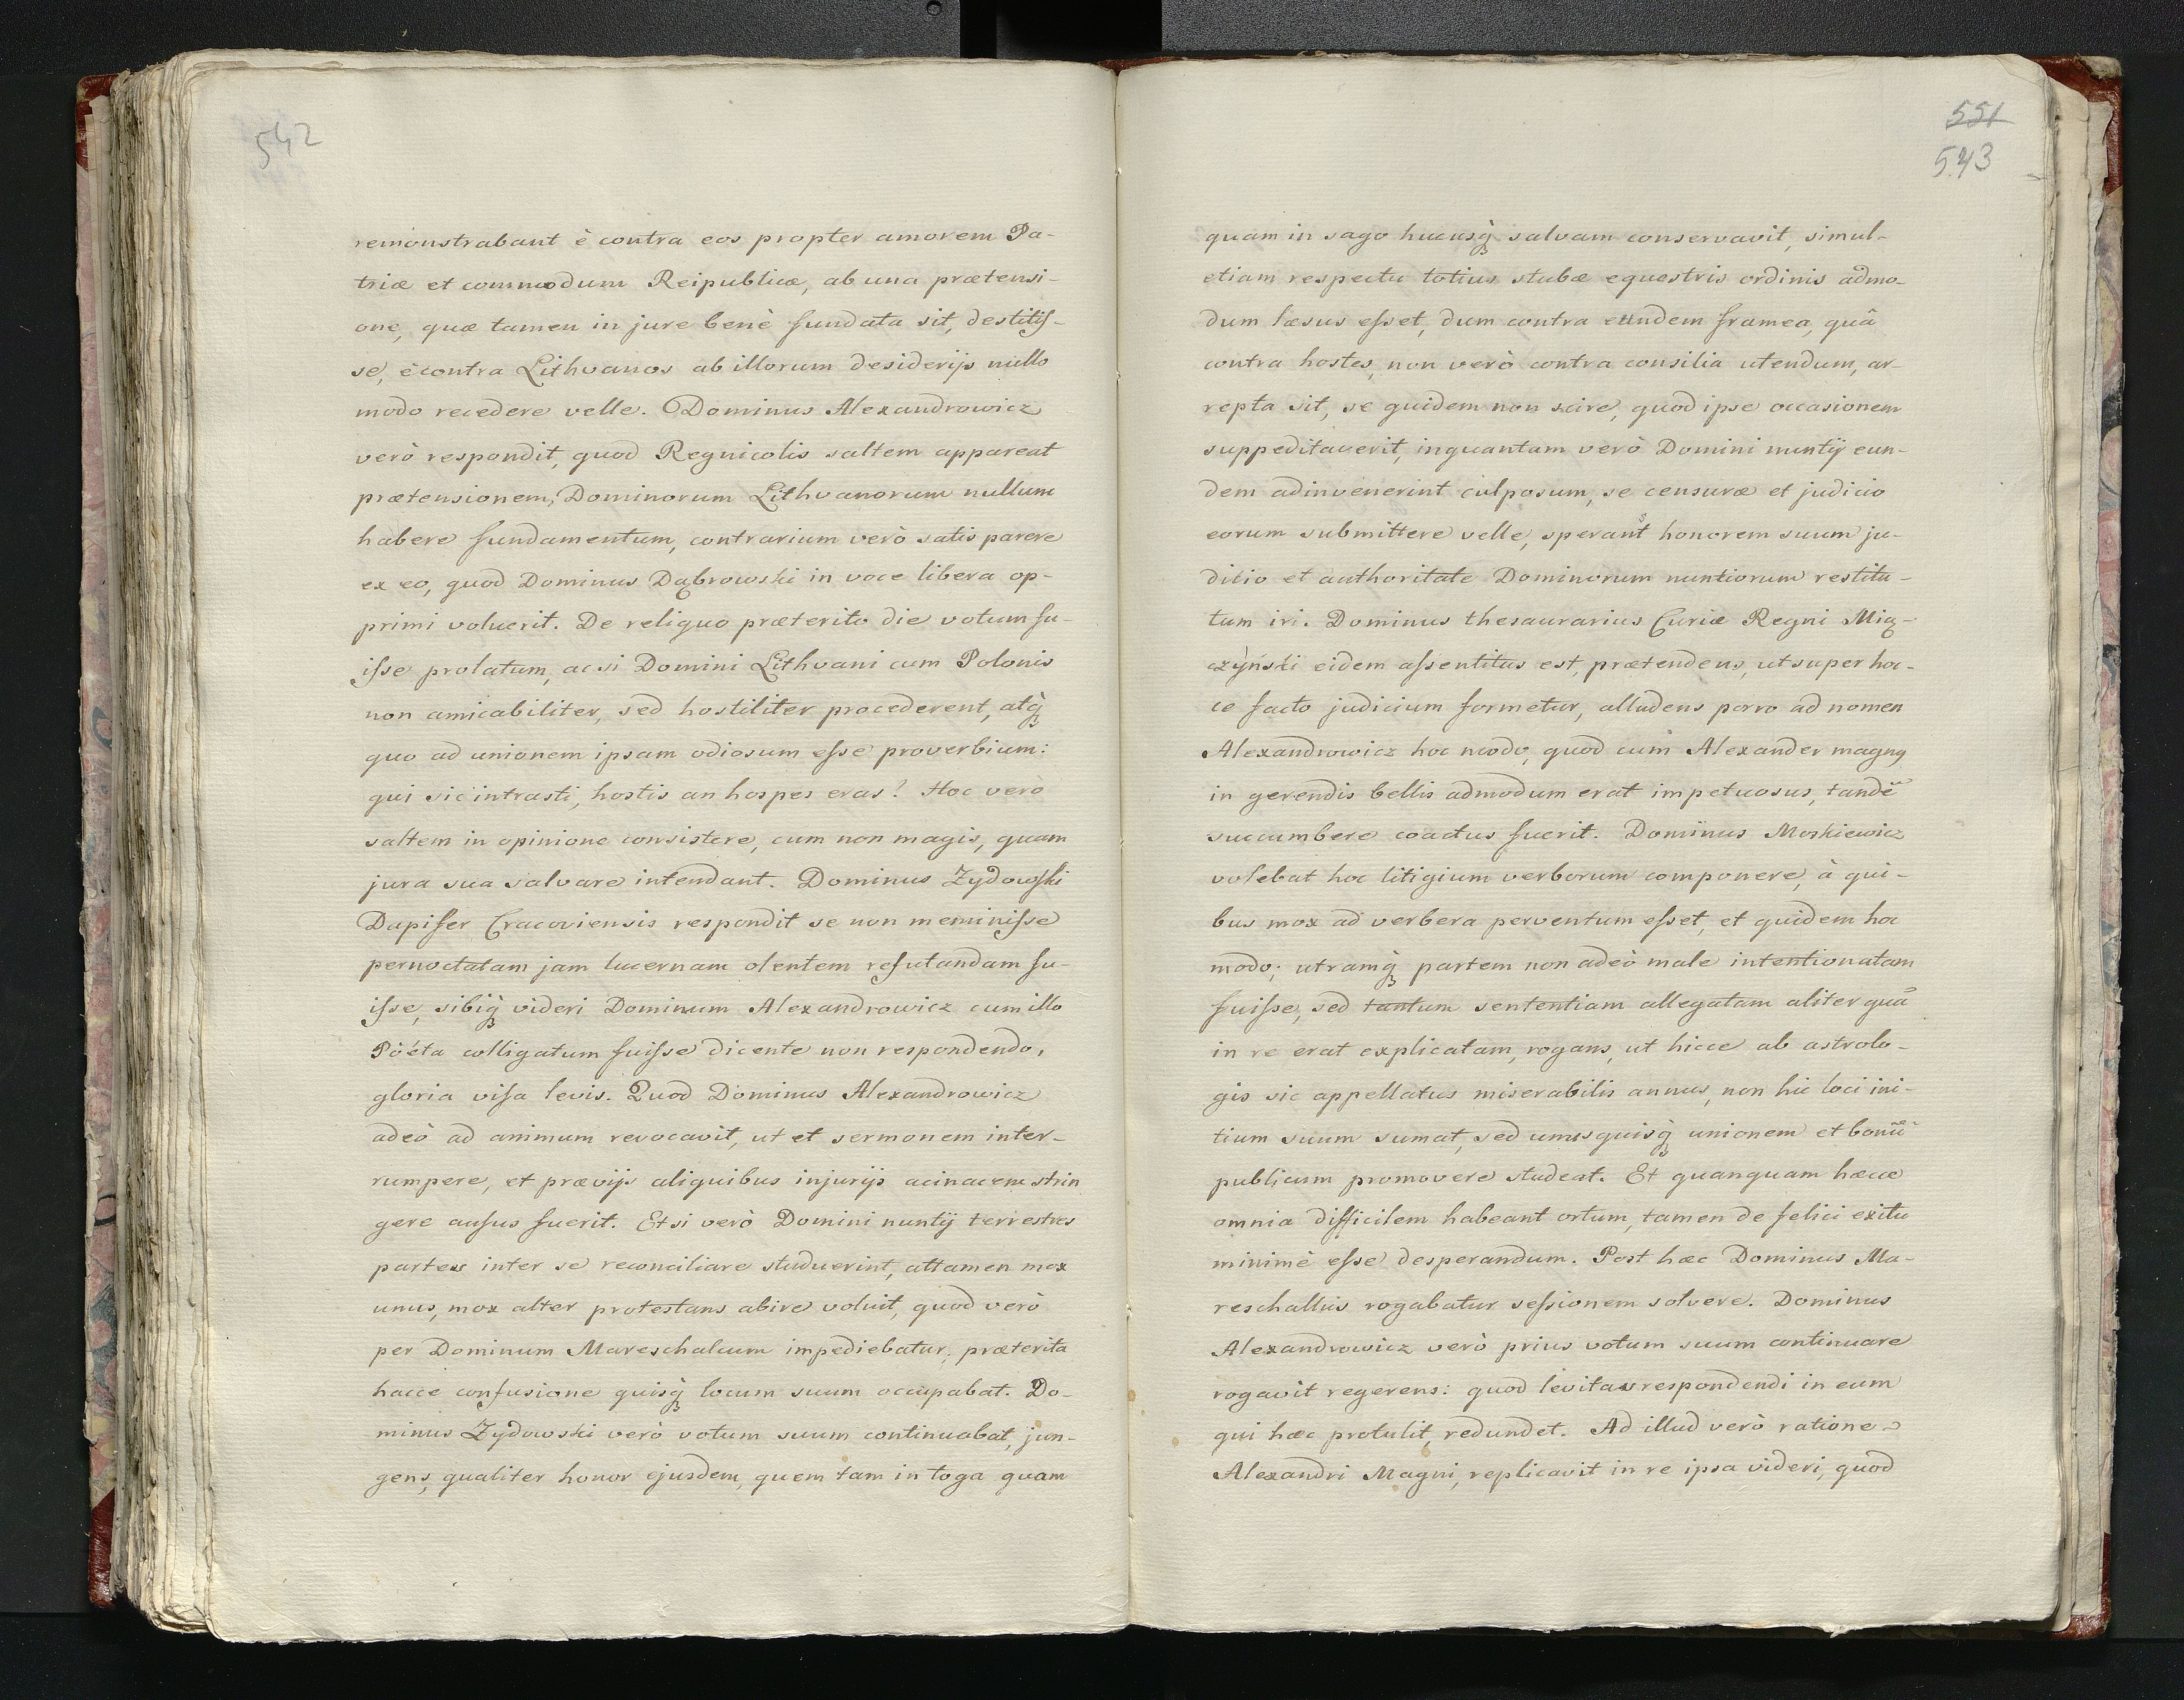 542
remonstrabant è contra eos propter amorem Pa-
triæ et commodum Reipublicæ, ab una prætensi-
one, quæ tamen in jure benè fundata sit, destitiſ-
se, è contra Lithvanos ab illorum desiderijs nullo
modo recedere velle. Dominus Alexandrowicz
verò respondit, quod Regnicolis saltem appareat
prætensionem, Dominorum Lithvanorum nullum
habere fundamentum, contrarium verò satis parere
ex eo, quod Dominus Dąbrowski in voce libera op-
primi voluerit. De reliquo præterito die votum fu-
iſse prolatum, ac si Domini Lithvani cum Polonis
non amicabiliter, sed hostiliter procederent, atq̀ꝫ
quo ad unionem ipsam odiosum eſse proverbium:
qui sic intrasti, hostis an hospes eras? Hoc verò
saltem in opinione consistere, cum non magis, quam
jura sua salvare intendant. Dominus Zydowſki
Dapifer Cracoviensis respondit se non meminiſse
pernoctatam jam lucernam olentem refutandam fu-
iſse, sibiq̀ꝫ videri Dominum Alexandrowicz cum illo
Pöéta colligatum fuiſse dicente non respondendo,
gloria viſa levis. Quod Dominus Alexandrowicz
adeò ad animum revocavit, ut et sermonem inter-
rumpere, et prævijs aliquibus injurijs acinacem strin
gere auſus fuerit. Etsi verò Domini nuntij terrestres
partes inter se reconciliare studuerint, attamen mox
unus, mox alter protestans abire voluit, quod verò
per Dominum Mareschalcum impediebatur; præterita
hacce confusione quisq̀ꝫ locum suum occupabat. Do-
minus Zydowski verò votum suum continuabat, jun-
gens, qualiter honor ejusdem, quem tam in toga quam
551
543
quam in sago hucusq̀ꝫ salvam conservavit, simul-
etiam respectu totius stubæ equestris ordinis admo-
dum læsus eſset, dum contra eundem framea, quâ
contra hostes, non verò contra consilia utendum, ar-
repta sit, se quidem non scire, quod ipse occasionem
suppeditaverit, inquantum verò Domini nuntij eun-
dem adinvenerint culposum, se censuræ et judicio
eorum submittere velle, sperans honorem suum ju-
dicio et authoritate Dominorum nuntiorum restitu-
tum iri. Dominus thesaurarius Curiæ Regni Mią-
czÿński eidem aſsentitus est, prætendens, ut super hoc-
ce facto judicium formetur, alludens porro ad nomen
Alexandrowicz hoc modo, quod cum Alexander magnꝯ
in gerendis bellis admodum erat impetuosus, tandē
succumbere coactus fuerit. Dominus Moskiewicz
volebat hoc litigium verborum componere, à qui-
bus mox ad verbera perventum eſset, et quidem hoc
modo; utramq̀ꝫ partem non adeò male intentionatam
fuiſse, sed tantum sententiam allegatam aliter quā
in re erat explicatam, rogans, ut hicce ab astrolo-
gis sic appellatus miserabilis annus, non hic loci ini-
tium suum sumat, sed unusquisq̀ꝫ unionem et bonū
publicum promovere studeat. Et quanquam hæcce
omnia difficilem habeant ortum, tamen de felici exitu
minimè eſse desperandum. Post hæc Dominus Ma-
reschallus rogabatur seſsionem solvere. Dominus
Alexandrowicz verò prius votum suum continuare
rogavit regerens: quod levitas respondendi in eum
qui hæc protulit, redundet. Ad illud verò ratione
Alexandri Magni, replicavit in re ipsa videri, quod